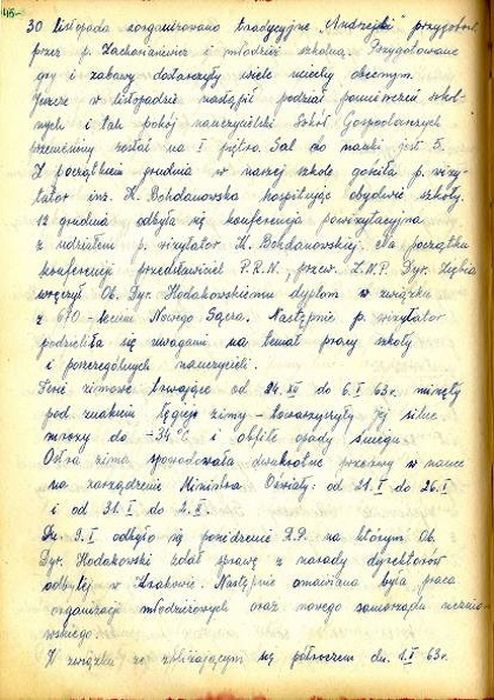 -45-
30 listopada zorganizowano tradycyjne "Andrzejki" przygotow.
przez p. Zacharianiewicz i młodzież szkolną. Przygotowane
gry i zabawy dostarczyły wiele uciechy obecnym.
Jeszcze w listopadzie nastąpił podział pomieszczeń szkol-
nych i tak pokój nauczycielski Szkół Gospodarczych
przeniesiony został na I piętro. Sal do nauki jest 5.
Z początkiem grudnia w naszej szkole gościła p. wizy-
tator inż. K. Bohdanowska hospitując obydwie szkoły.
12 grudnia odbyła się konferencja powizytacyjna
z udziałem p. wizytator K. Bohdanowskiej. Na początku
konferencji przedstawiciel P.R.N., przew. Z.N.P. Dyr. Zięba
wręczył Ob. Dyr. Hodakowskiemu dyplom w związku
z 670-leciem Nowego Sącza. Następnie p. wizytator
podzieliła się uwagami na temat pracy szkoły
i poszczególnych nauczycieli.
Ferie zimowe trwające od 24.XII do 6.I 63r. minęły
pod znakiem tęgiej zimy - towarzyszyły jej silne
mrozy do -34°C i obfite opady śniegu.
Ostra zima spowodowała dwukrotne przerwy w nauce
na zarządzenie Ministra Oświaty: od 21.I do 26.I
i od 31.I do 2.II.
Dn. 9.I odbyło się posiedzenie R.P. na którym Ob.
Dyr. Hodakowski zdał sprawę z narady dyrektorów
odbytej w Krakowie. Następnie omawiana była praca
organizacji młodzieżowych oraz nowego samorządu uczniow-
skiego.
W związku ze zbliżającym się półroczem dn. 1.II 63r.